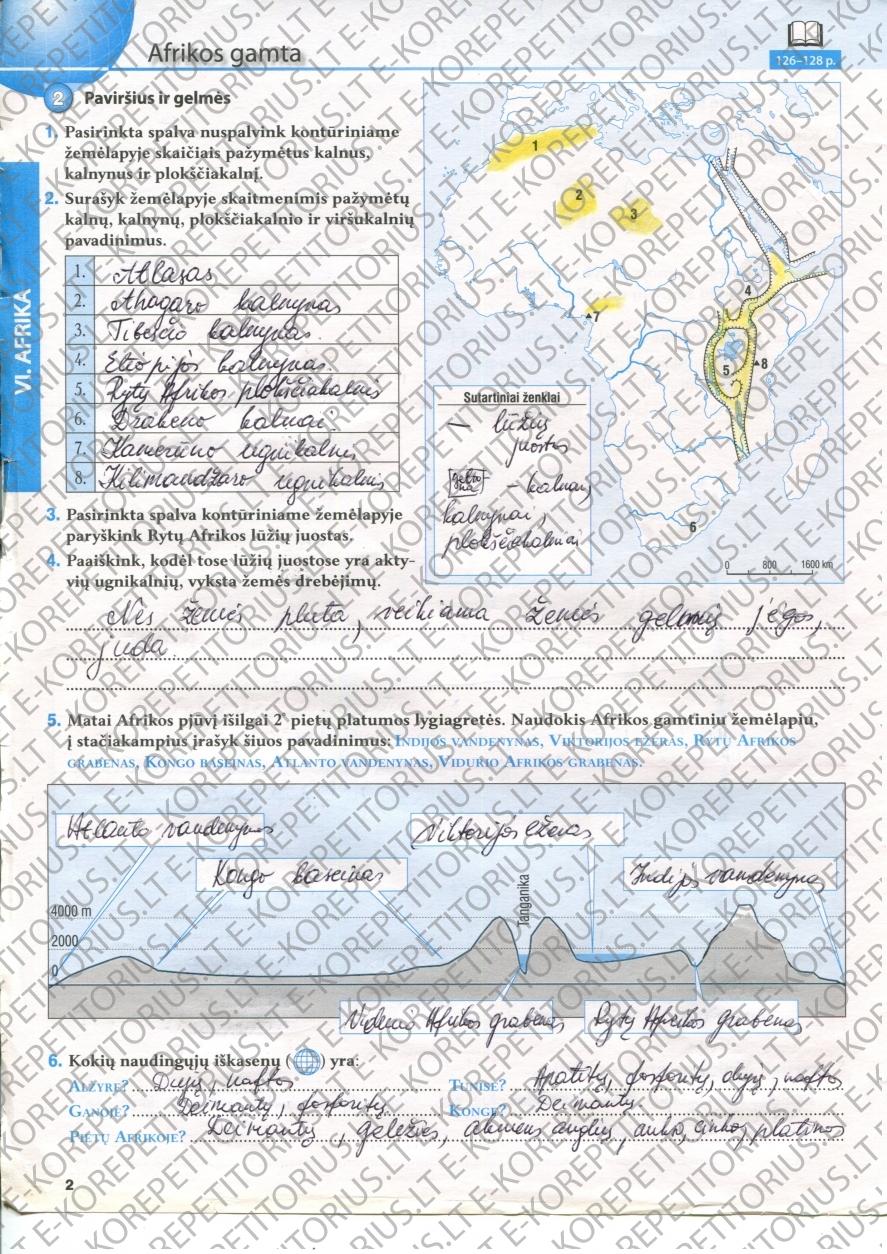 Afrikos gamta
126–128 p.
2 Paviršius ir gelmės
1. Pasirinkta spalva nuspalvink kontūriniame
žemėlapyje skaičiais pažymėtus kalnus,
kalnynus ir plokščiakalnį.
2. Surašyk žemėlapyje skaitmenimis pažymėtų
kalnų, kalnynų, plokščiakalnio ir viršukalnių
pavadinimus.
VI. AFRIKA
1. Atlasas
2. Ahagaro kalnynas
3. Tibesčio kalnynas.
4. Etiopijos kalnynas.
5. Rytų Afrikos plokščiakalnis
6. Drakeno kalnai.
7. Kamerūno ugnikalnis
8. Kilimandžaro ugnikalnis
1
2
3
4
7
5
8
6
Sutartiniai ženklai
— lūžių
juostos
geltona – kalnai,
kalnynai,
plokščiakalniai
0 800 1600 km
3. Pasirinkta spalva kontūriniame žemėlapyje
paryškink Rytų Afrikos lūžių juostas.
4. Paaiškink, kodėl tose lūžių juostose yra akty-
vių ugnikalnių, vyksta žemės drebėjimų.
Nes žemės pluta, veikiama žemės gelmių jėgos,
juda.
5. Matai Afrikos pjūvį išilgai 2° pietų platumos lygiagretės. Naudokis Afrikos gamtiniu žemėlapiu,
į stačiakampius įrašyk šiuos pavadinimus: Indijos vandenynas, Viktorijos ežeras, Rytų Afrikos
grabenas, Kongo baseinas, Atlanto vandenynas, Vidurio Afrikos grabenas.
Atlanto vandenynas
Viktorijos ežeras
Kongo baseinas
Indijos vandenynas
Tanganika
4000 m
2000
0
Vidurio Afrikos grabenas
Rytų Afrikos grabenas
6. Kokių naudingųjų iškasenų ( ) yra:
Alžyre? Dujų, naftos
Tunise? Apatitų, fosforitų, dujų, naftos
Ganoje? Deimantų, fosforitų
Konge? Deimantų
Pietų Afrikoje? Deimantų, geležies, akmens anglių, aukso, cinko, platinos
2
E-KOREPETITORIUS.LT